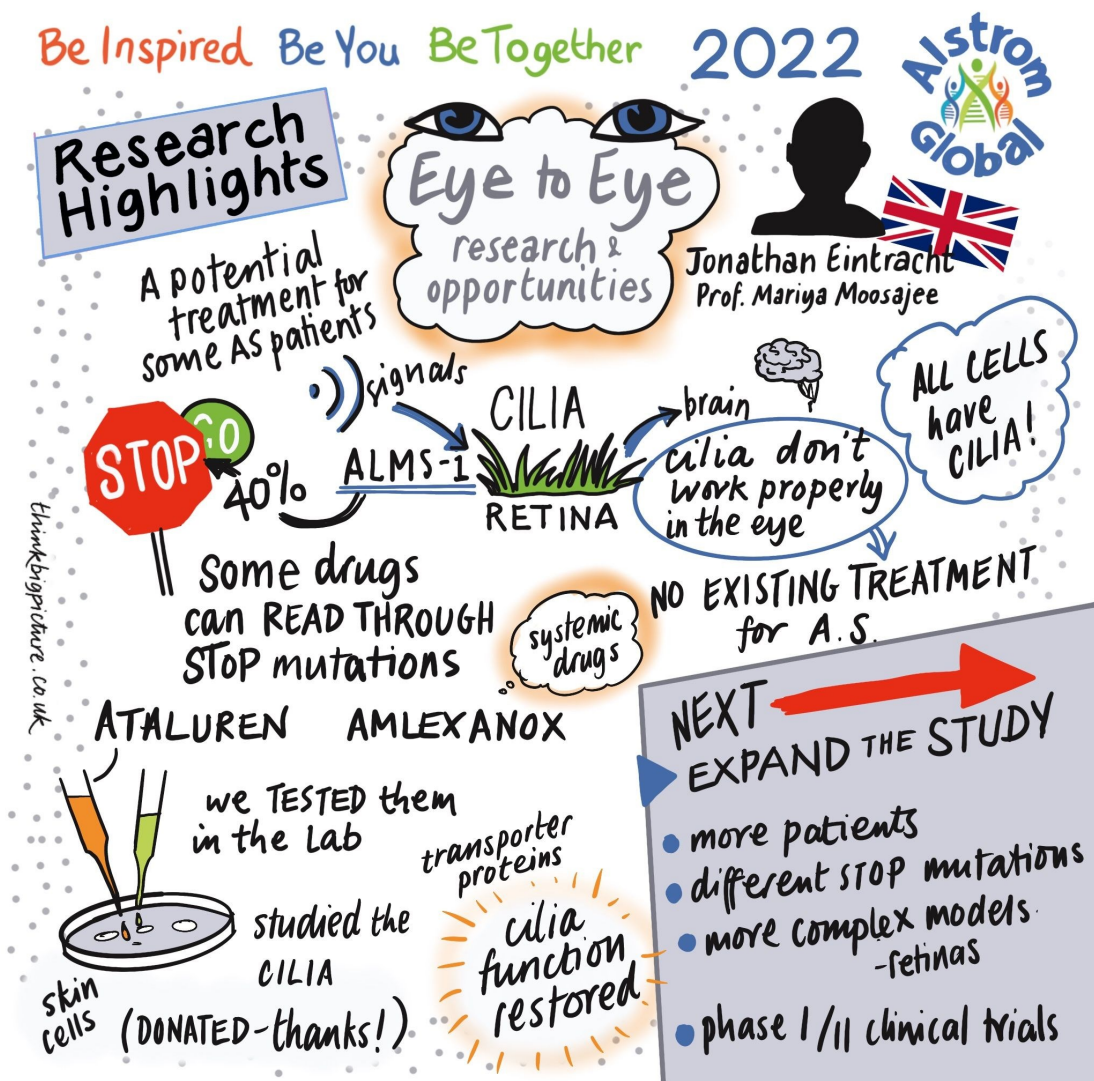 Be Inspired Be You Be Together 2022
Alstrom
Global
Research
Highlights
Eye to Eye
research &
opportunities
Jonathan Eintracht
Prof. Mariya Moosajee
A potential
treatment for
some AS patients
signals
CILIA
brain
ALL CELLS
have
CILIA!
STOP
GO
40%
ALMS-1
RETINA
cilia don't
work properly
in the eye
NO EXISTING TREATMENT
for A.S.
Some drugs
can READ THROUGH
STOP mutations
systemic
drugs
thinkbigpicture.co.uk
ATALUREN AMLEXANOX
we TESTED them
in the Lab
studied the
CILIA
skin
cells
(DONATED-thanks!)
transporter
proteins
cilia
function
restored
NEXT
EXPAND THE STUDY
more patients
different STOP mutations
more complex models
-retinas
phase I/II clinical trials